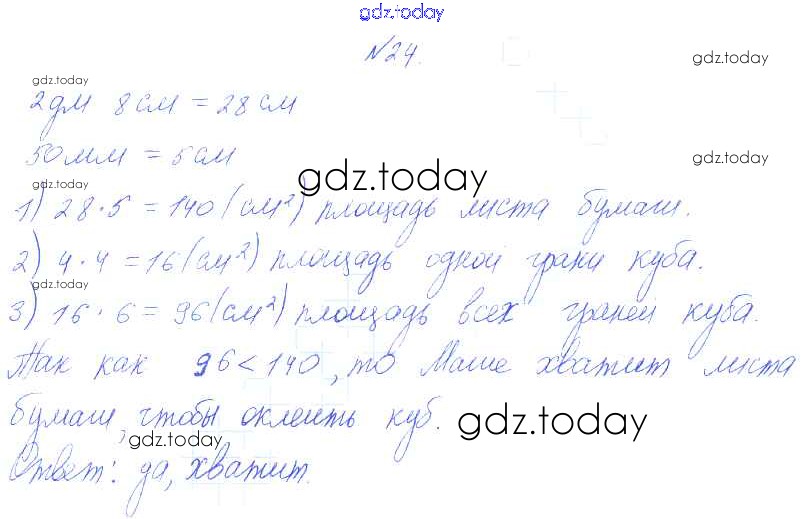 gdz.today
№24.
gdz.today
gdz.today
2дм 8см = 28см
50мм = 5см
gdz.today
gdz.today
gdz.today
1) 28·5 = 140 (см²) площадь листа бумаги.
2) 4·4 = 16 (см²) площадь одной грани куба.
gdz.today
3) 16·6 = 96 (см²) площадь всех граней куба.
Так как 96 < 140, то Маше хватит листа
бумаги, чтобы оклеить куб.
gdz.today
gdz.today
Ответ: да, хватит.